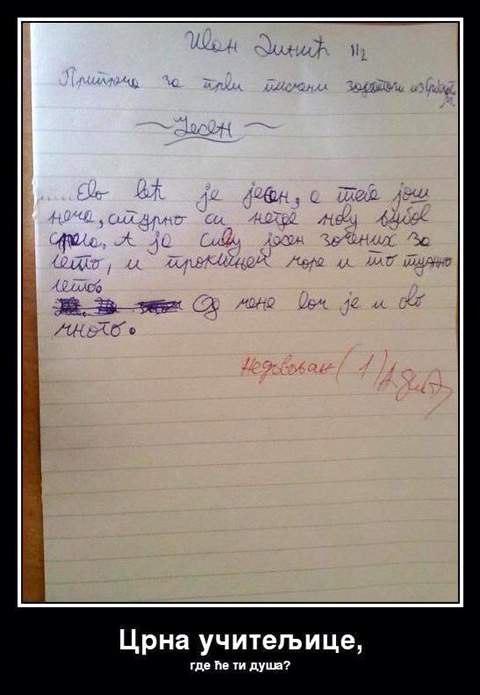 Иван Зинић II2
Припрема за први писмени задатак из српског
Јесен
..... Ево већ је јесен, а тебе још
нема, сигурно си негде нову љубав
срела, А ја сиву јесен зачених за
лето, и проклињем море и то тужно
лето.
Од мене доч је и ово
много.
Недовољан (1)
Црна учитељице,
где ће ти душа?